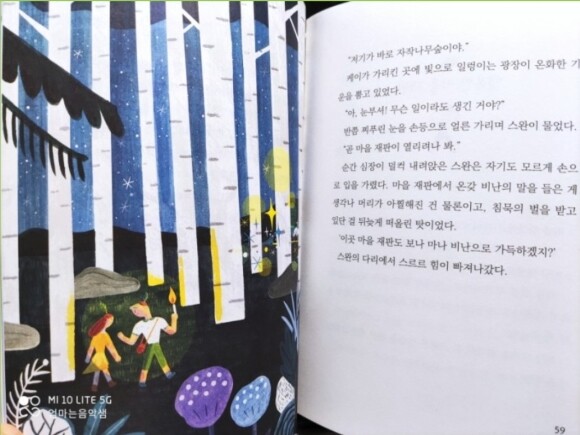 "저기가 바로 자작나무숲이야."
케이가 가리킨 곳에 빛으로 일렁이는 광장이 온화한 기
운을 뿜고 있었다.
"아, 눈부셔! 무슨 일이라도 생긴 거야?"
반쯤 찌푸린 눈을 손등으로 얼른 가리며 스완이 물었다.
"곧 마을 재판이 열리려나 봐."
순간 심장이 덜컥 내려앉은 스완은 자기도 모르게 손으
로 입을 가렸다. 마을 재판에서 온갖 비난의 말을 들은 게
생각나 머리가 아찔해진 건 물론이고, 침묵의 벌을 받고
있단 걸 뒤늦게 떠올린 탓이었다.
'이곳 마을 재판도 보나 마나 비난으로 가득하겠지?'
스완의 다리에서 스르르 힘이 빠져나갔다.
59
MI 10 LITE 5G
엄마는음악샘